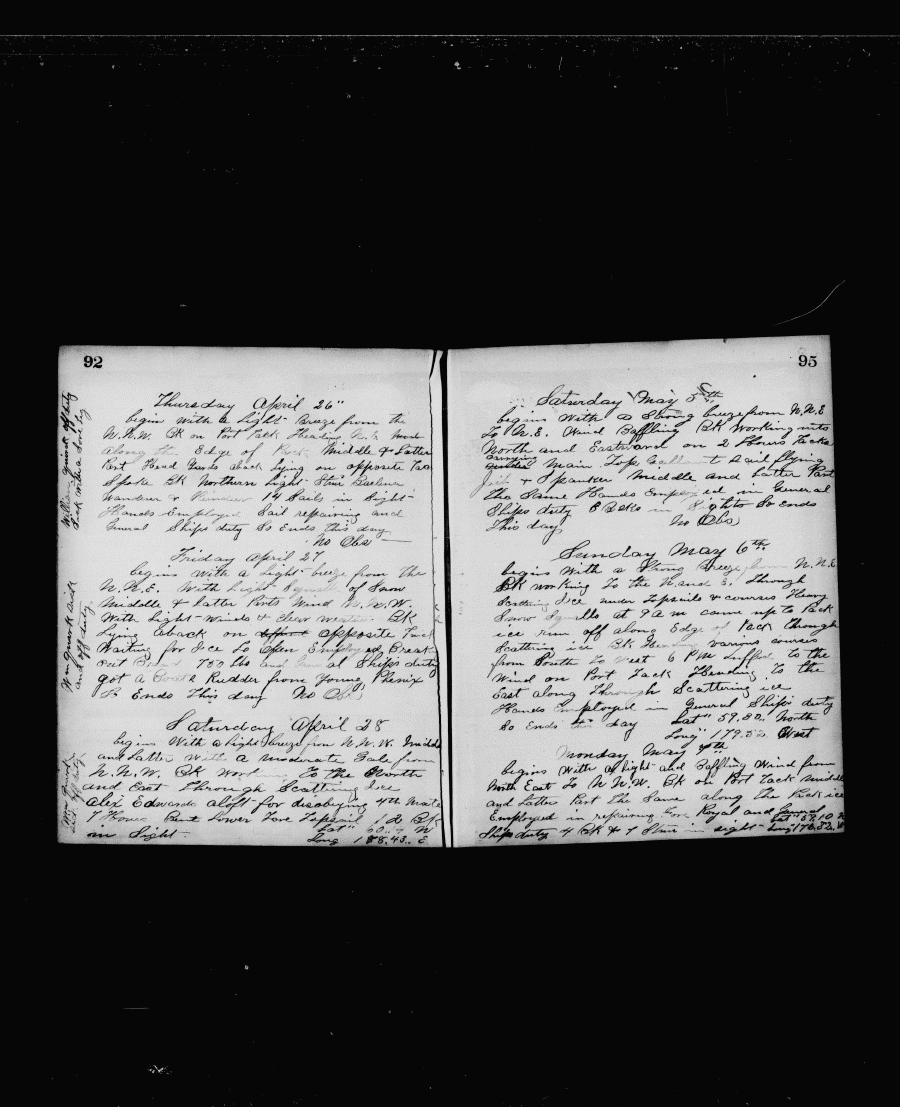 92
Thursday April 26"
begin with a light breeze from the
N.N.W. BK on Port Tack Heading N.E. 
along the Edge of Pack Middle & Latter
Part Head Yards aback lying on opposite Tac
Spoke BK Northern Light Stm
Wanderer & 14 Sails in Sight
Hands Employed Sail repairing and
General Ships duty So Ends this day
No Obs
William quork off duty
Sick with a
Friday April 27
begins with a light breeze from the
N.N.E. With light Squalls of Snow
Middle & latter Parts Wind N.N.W.
With Light Winds & Clear weather BK
Lying aback on opposite Tack
Waiting for Ice to Open Employed Break
out Bread 700 lbs and General Ships duty
got a Rudder from Young Phenix
So Ends This day No Obs
Wm quork sick
and off duty
Saturday April 28
begins With a light breeze from N.N.W. Middle
and Latter With a moderate Gale from
N.N.W. BK Working To the North
and East Through Scattering Ice
Alex Edwards aloft for disobeying 4th Mate
7 Hours Bent Lower Fore Topsail 12 BK
in Sight Lat" 60 N
Long 188.43. E
Wm quork
off duty
95
Saturday May 5th
begins With a Strong breeze from N.N.E
To N.E. Wind Baffling BK Working into
North and Eastward on 2 Hours Tacks
carrying Main Top Gallant Sail flying
Jib & Spanker Middle and Latter Part
the Same Hands Employed in General
Ships duty 8 BKs in Sight So Ends
This day No Obs
Sunday May 6th
begins With a Strong Breeze from N.N.E
BK working To the N. and E. Through
Scattering Ice under Topsails & courses Heavy
Snow Squalls at 9 am came up to Pack
ice run off along Edge of Pack through
Scattering ice BK Heading various courses
from South To West 6 PM Luffed To the
Wind on Port Tack Heading To the
East along Through Scattering ice
Hands Employed in General Ships duty
So Ends this day Lat" 59.82. North
Long" 179.52 West
Monday May 7th
begins With a light and Baffling Wind from
North East To N N.W. BK on Port Tack Middle
and Latter Part The Same along The Pack ice
Employed in repairing Fore Royal and General
Ships duty 4 BK & 7 Stm in sight Lat" 59.10 N
Long" 178.52. W